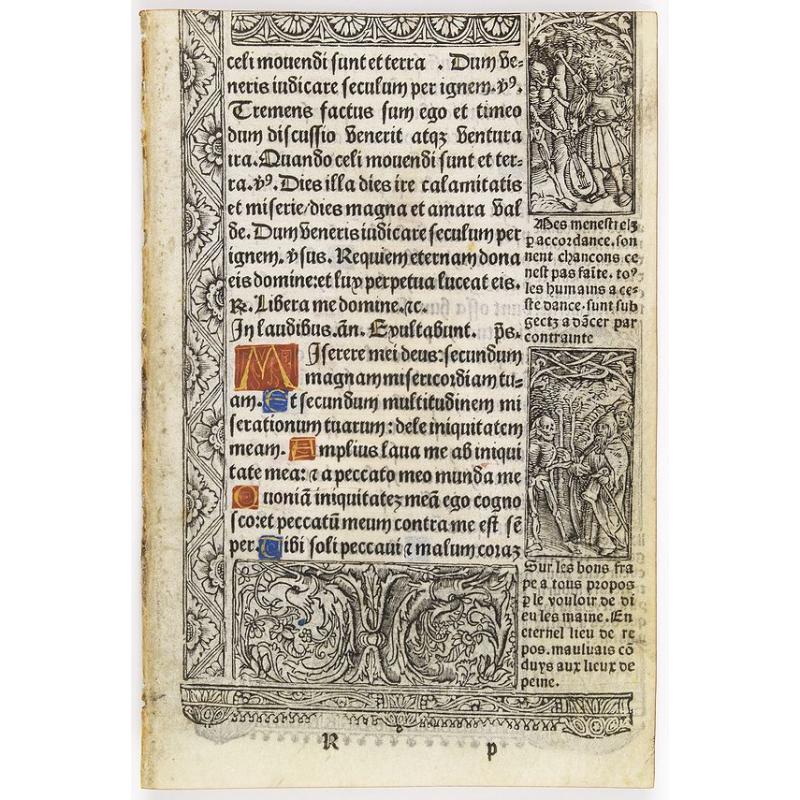 celi mouendi sunt et terra . Dum ve=
neris iudicare seculum per ignem.vꝰ.
Tremens factus sum ego et timeo
dum discussio venerit atqꝫ ventura
ira. Quando celi mouendi sunt et ter-
ra.vꝰ. Dies illa dies ire calamitatis
et miserie/dies magna et amara val
de. Dum veneris iudicare seculum per
ignem. v̄sus. Requiem eternam dona
eis domine:et lux perpetua luceat eis.
℞. Libera me domine.⁊c.
In laudibus.an̄. Exultabunt. p̄s.
MIserere mei deus:secundum
magnam misericordiam tu-
am. Et secundum multitudinem mi
serationum tuarum: dele iniquitatem
meam. Amplius laua me ab iniqui
tate mea: ⁊ a peccato meo munda me
Quoniā iniquitateꝫ meā ego cogno
sco:et peccatū meum contra me est sē
per. Tibi soli peccaui ⁊ malum coraꝫ
Mes menestrelꝫ
ꝑ accordance.son
nent chancons ce
nest pas faīte. toꝰ
les humains a ce=
ste dance.sunt sub
gectꝫ a dācer par
contrainte
Sur les bons fra
pe a tous propos
ꝑ le vouloir de di
eu les maine.En
eternel lieu de re
pos.mauluais cō
duys aux lieux de
peine.
R p